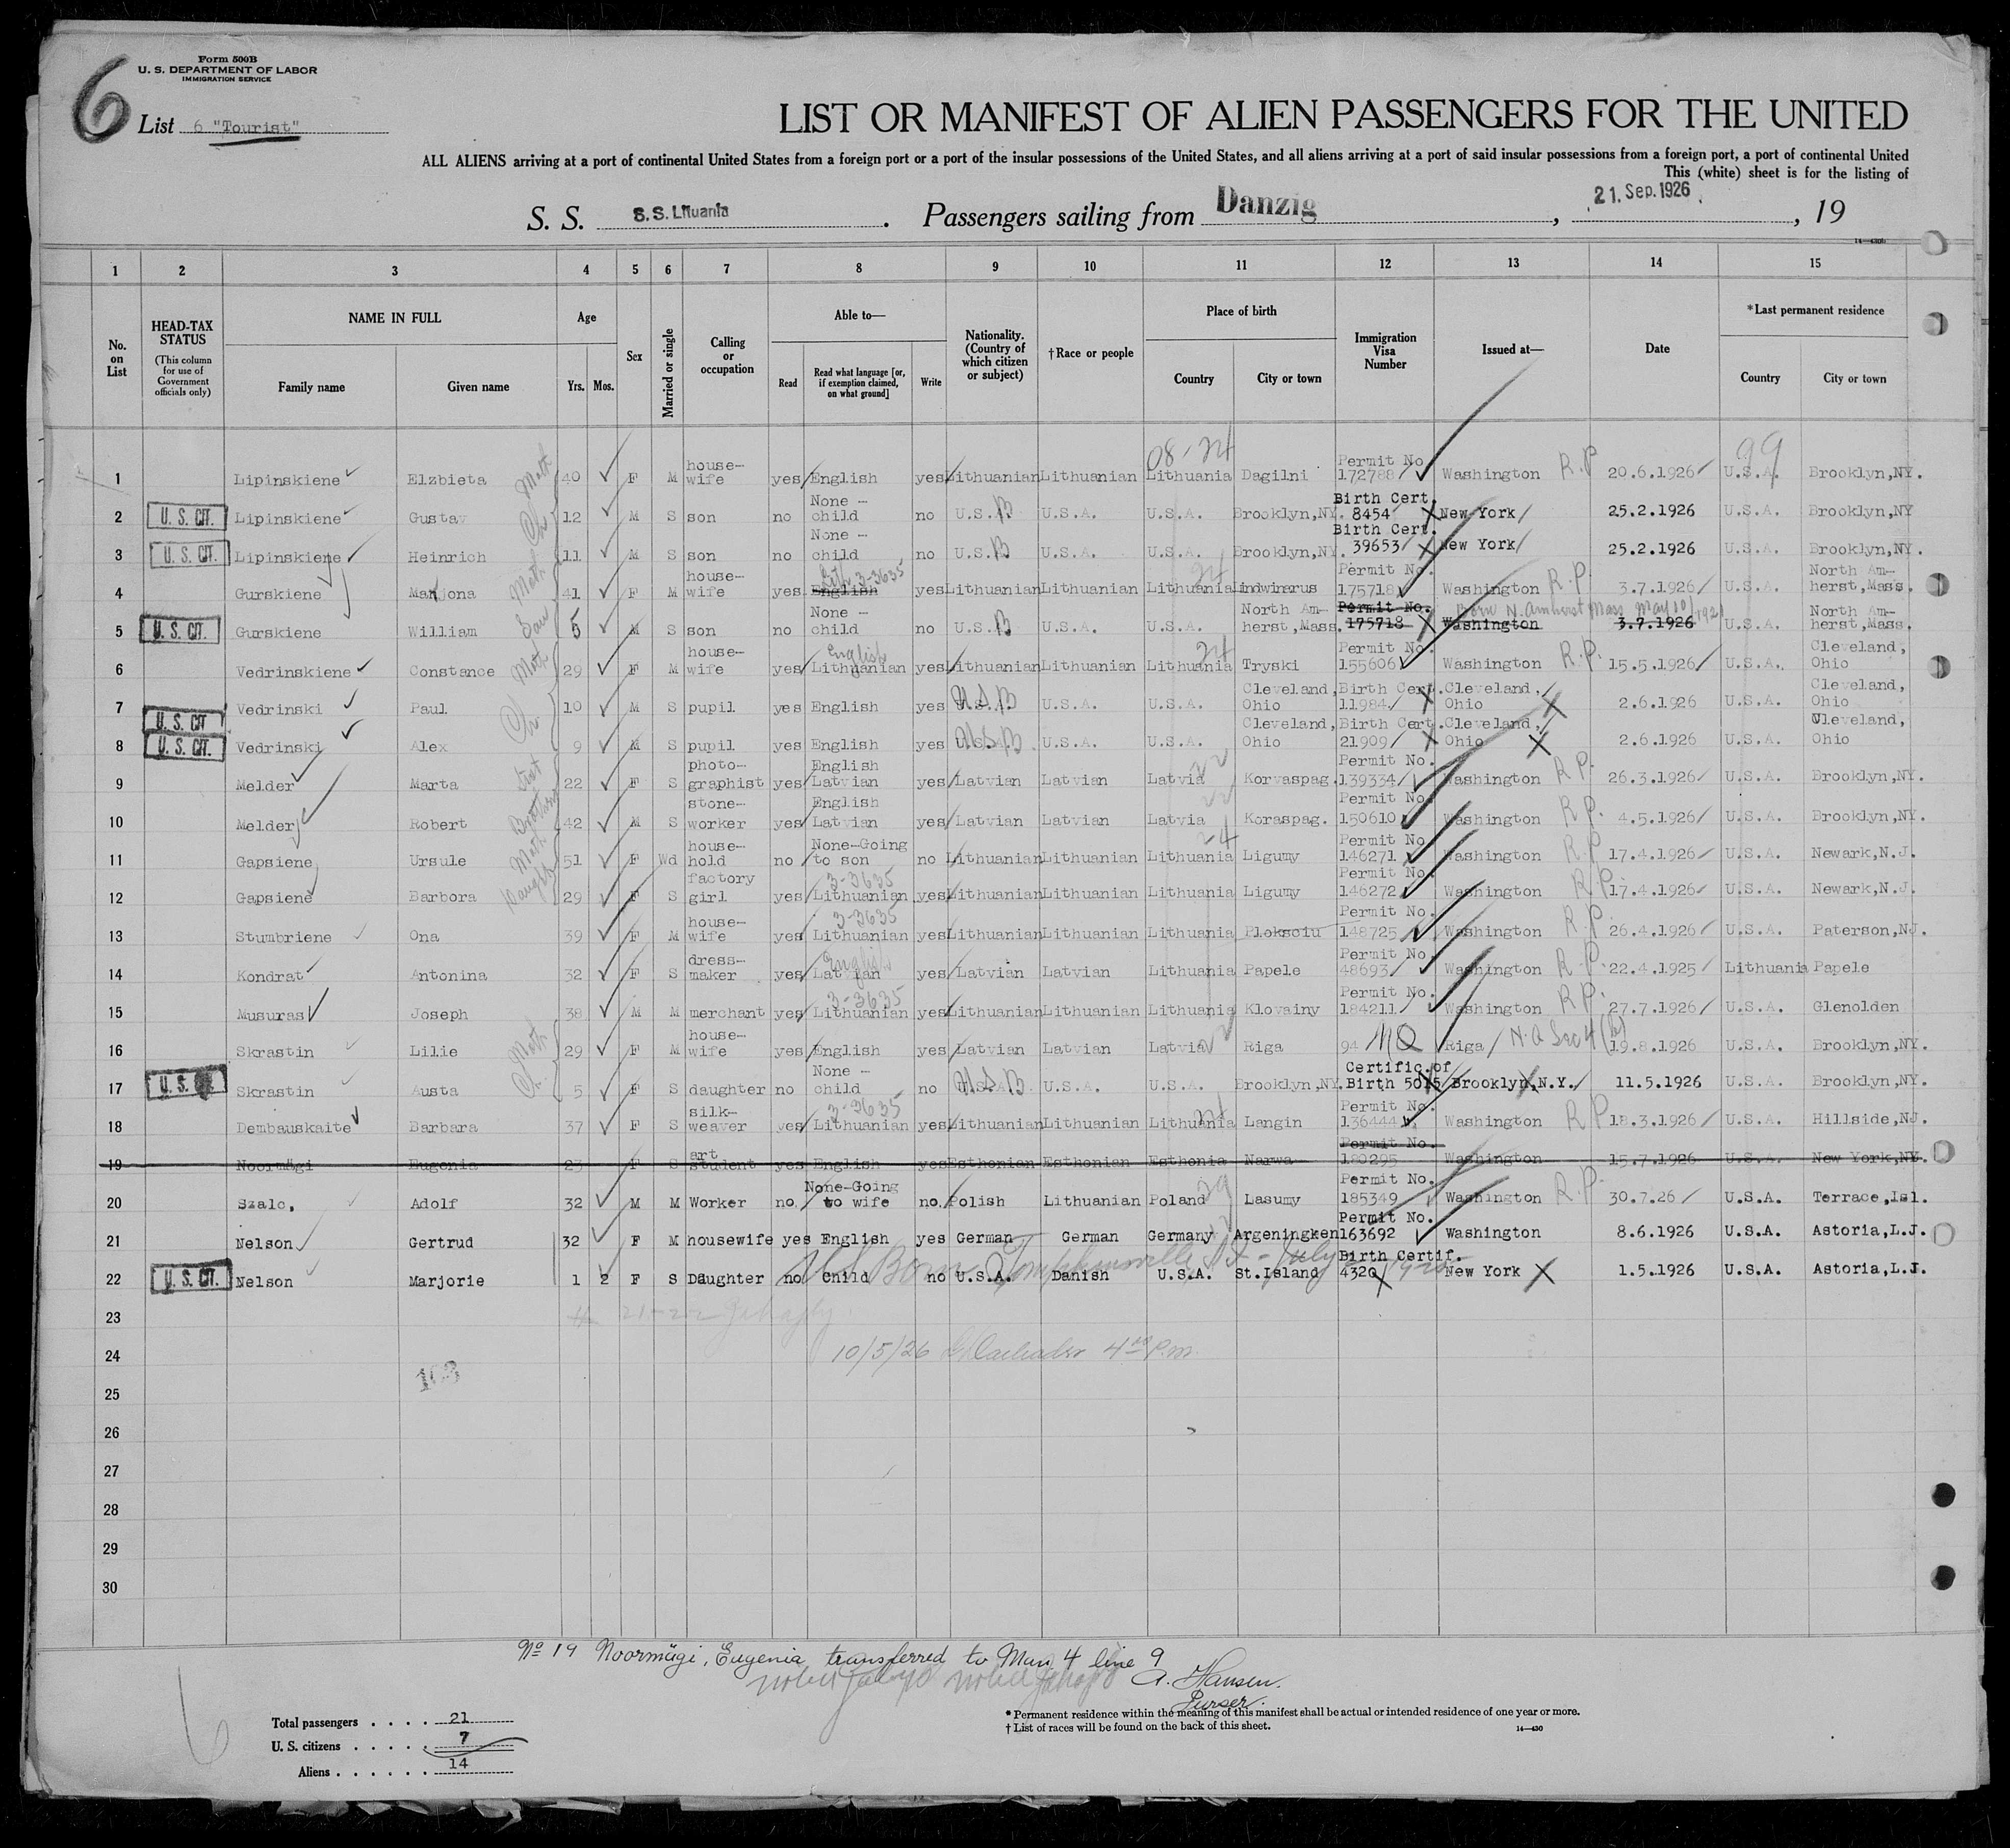 6
Form 500B
U. S. DEPARTMENT OF LABOR
IMMIGRATION SERVICE
List 6 "Tourist"
LIST OR MANIFEST OF ALIEN PASSENGERS FOR THE UNITED
ALL ALIENS arriving at a port of continental United States from a foreign port or a port of the insular possessions of the United States, and all aliens arriving at a port of said insular possessions from a foreign port, a port of continental United
This (white) sheet is for the listing of
S. S. S.S. Lituania. Passengers sailing from Danzig, 21. Sep. 1926, 19
1 2 3 4 5 6 7 8 9 10 11 12 13 14 15
No. on List
HEAD-TAX STATUS
(This column for use of Government officials only)
NAME IN FULL
Family name Given name
Age
Yrs. Mos.
Sex
Married or single
Calling or occupation
Able to—
Read Read what language [or, if exemption claimed, on what ground] Write
Nationality. (Country of which citizen or subject)
†Race or people
Place of birth
Country City or town
Immigration Visa Number
Issued at—
Date
*Last permanent residence
Country City or town
08-24 99
1 Lipinskiene Elzbieta 40 F M house-wife yes English yes Lithuanian Lithuanian Lithuania Dagilni Permit No. 172788 Washington R.P 20.6.1926 U.S.A. Brooklyn,NY.
2 U. S. CIT. Lipinskiene Gustav 12 M S son no None - child no U.S.B U.S.A. U.S.A. Brooklyn,NY. Birth Cert. 8454 New York 25.2.1926 U.S.A. Brooklyn,NY
3 U. S. CIT. Lipinskiene Heinrich 11 M S son no None - child no U.S.B U.S.A. U.S.A. Brooklyn,NY. Birth Cert. 39653 New York 25.2.1926 U.S.A. Brooklyn,NY.
4 Gurskiene Marjona 41 F M house-wife yes English Lith 3-3635 yes Lithuanian Lithuanian Lithuania Permit No. 175718 Washington R.P. 3.7.1926 U.S.A. North Am-herst,Mass.
5 U. S. CIT. Gurskiene William 5 M S son no None - child no U.S.B U.S.A. U.S.A. North Am-herst,Mass. Permit No. 175718 Washington Born N. Amherst Mass May 10/1921 3.7.1926 U.S.A. North Am-herst,Mass.
6 Vedrinskiene Constance 29 F M house-wife yes Lithuanian English yes Lithuanian Lithuanian Lithuania 24 Tryski Permit No. 155606 Washington R.P. 15.5.1926 U.S.A. Cleveland, Ohio
7 U. S. CIT Vedrinski Paul 10 M S pupil yes English yes U.S.B U.S.A. U.S.A. Cleveland, Ohio Birth Cert. 11984 Cleveland, Ohio 2.6.1926 U.S.A. Cleveland, Ohio
8 U. S. CIT. Vedrinski Alex 9 M S pupil yes English yes U.S.B U.S.A. U.S.A. Cleveland, Ohio Birth Cert. 21909 Cleveland, Ohio 2.6.1926 U.S.A. Cleveland, Ohio
9 Melder Marta 22 F S photo-graphist yes English Latvian yes Latvian Latvian Latvia 22 Korvaspag. Permit No. 139334 Washington R.P. 26.3.1926 U.S.A. Brooklyn,NY.
10 Melder Robert 42 M S stone-worker yes English Latvian yes Latvian Latvian Latvia Koraspag. Permit No. 150610 Washington R.P. 4.5.1926 U.S.A. Brooklyn,NY.
11 Gapsiene Ursule 51 F Wd house-hold no None-Going to son no Lithuanian Lithuanian Lithuania 24 Ligumy Permit No. 146271 Washington R.P 17.4.1926 U.S.A. Newark,N.J.
12 Gapsiene Barbora 29 F S factory girl yes Lithuanian 3-3635 yes Lithuanian Lithuanian Lithuania Ligumy Permit No. 146272 Washington R.P. 17.4.1926 U.S.A. Newark,N.J.
13 Stumbriene Ona 39 F M house-wife yes Lithuanian 3-3635 yes Lithuanian Lithuanian Lithuania Ploksciu Permit No. 148725 Washington R.P. 26.4.1926 U.S.A. Paterson,NJ.
14 Kondrat Antonina 32 F S dress-maker yes Latvian English yes Latvian Latvian Lithuania Papele Permit No. 48693 Washington R.P. 22.4.1925 Lithuania Papele
15 Musuras Joseph 38 M M merchant yes Lithuanian 3-3635 yes Lithuanian Lithuanian Lithuania Klovainy Permit No. 184211 Washington R.P. 27.7.1926 U.S.A. Glenolden
16 Skrastin Lilie 29 F M house-wife yes English yes Latvian Latvian Latvia Riga 94 NQ Riga N.Q Sec 4 (b) 19.8.1926 U.S.A. Brooklyn,NY.
17 U. S. Skrastin Austa 5 F S daughter no None - child no U.S.B U.S.A. U.S.A. Brooklyn,NY. Certific.of Birth 5015 Brooklyn,N.Y. 11.5.1926 U.S.A. Brooklyn,NY.
18 Dembauskaite Barbara 37 F S silk-weaver yes Lithuanian 3-3635 yes Lithuanian Lithuanian Lithuania 24 Langin Permit No. 136444 Washington R P 18.3.1926 U.S.A. Hillside,NJ.
19 Noormägi Eugenia 23 F S art student yes English yes Esthonian Esthonian Esthonia Narwa Permit No. 180295 Washington 15.7.1926 U.S.A. New York,NY.
20 Szalc, Adolf 32 M M Worker no None-Going to wife no Polish Lithuanian Poland 29 Lasumy Permit No. 185349 Washington R.P. 30.7.26 U.S.A. Terrace,Isl.
21 Nelson Gertrud 32 F M housewife yes English yes German German Germany Argeningken Permit No. 163692 Washington 8.6.1926 U.S.A. Astoria,L.J.
22 U. S. CIT. Nelson Marjorie 1 2 F S Daughter no Child no U.S.A. Danish U.S.A. St.Island Birth Certif. 4320 New York 1.5.1926 U.S.A. Astoria,L.J.
U.S. Born Tompkinsville S I - July 1925
23
24 10/5/26 4 00 P.m.
25 103
26
27
28
29
30
No 19 Noormägi, Eugenia transferred to Man 4 line 9
A. Hansen.
Purser.
Total passengers . . . . 21
U. S. citizens . . . . . 7
Aliens . . . . . . 14
* Permanent residence within the meaning of this manifest shall be actual or intended residence of one year or more.
† List of races will be found on the back of this sheet.
14—430